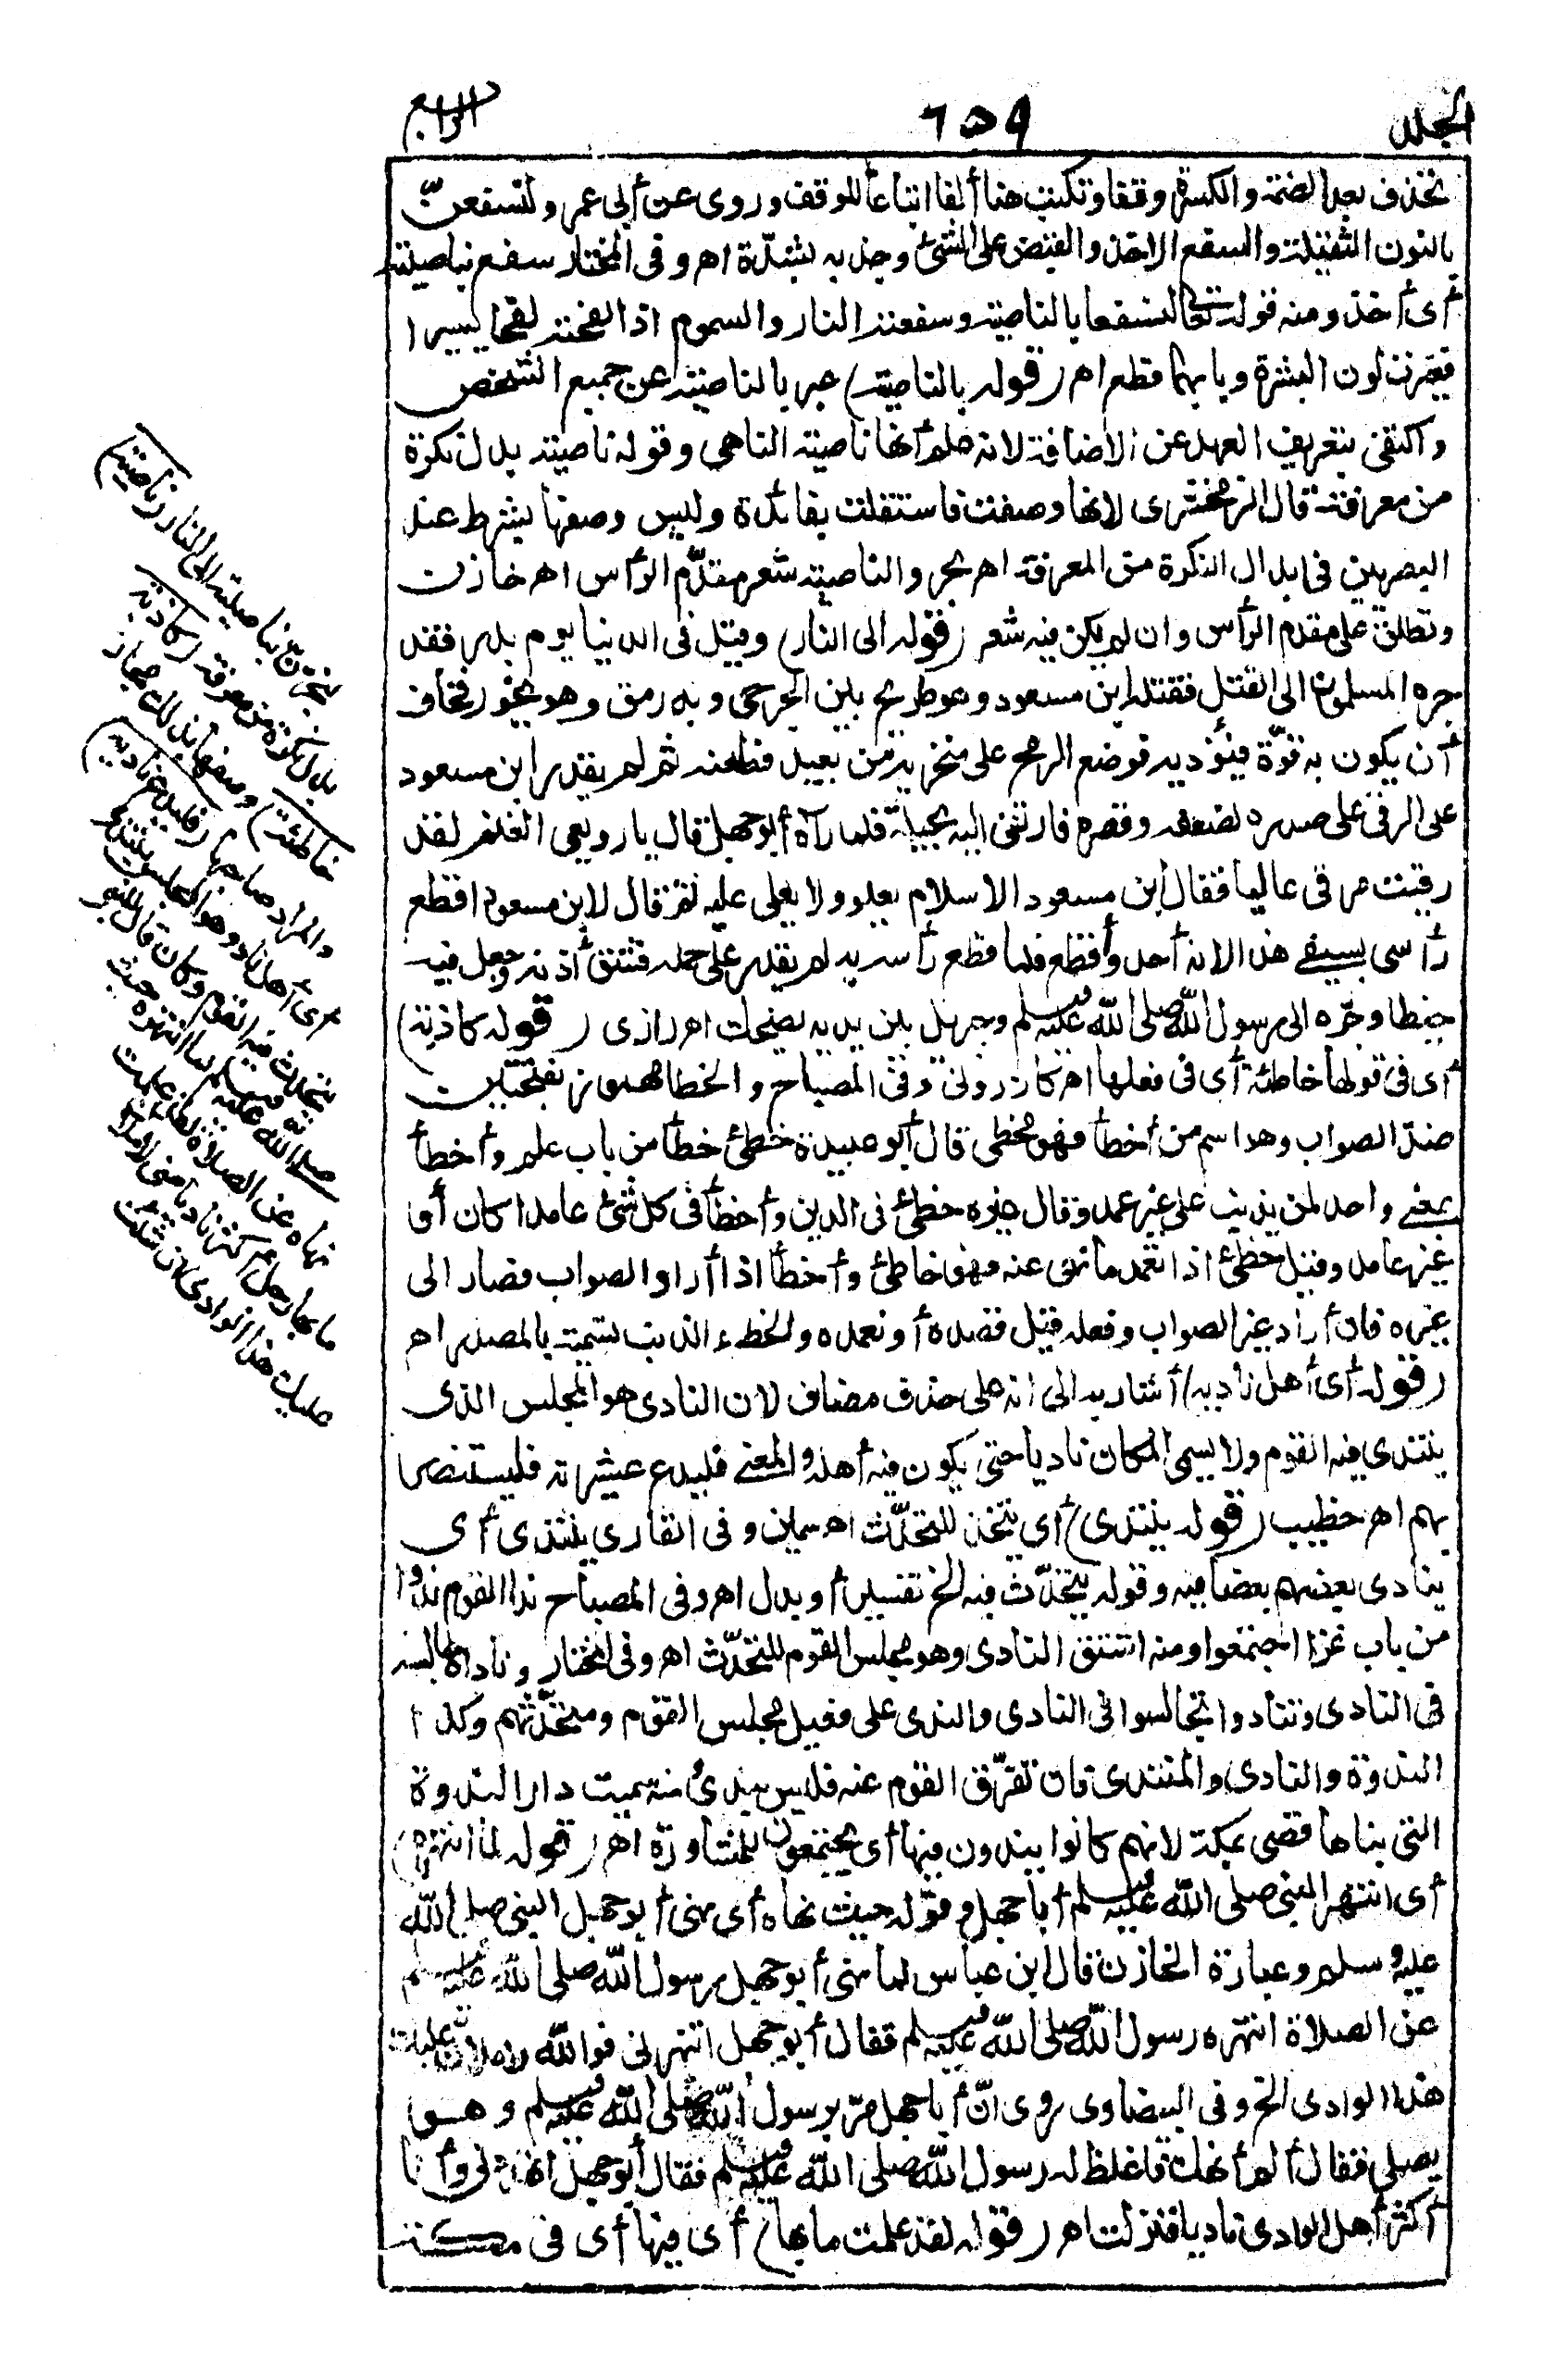 المجلد
٦٥٩
الرابع
تحذف بعد الضمة والكسرة وقفا وتكتب هنا ألفا اتباعا للوقف وروى عن أبى عمرو لنسفعنّ
بالنون الثقيلة والسفع الاخذ والقبض على الشئ وجذبه بشدّة اهر وفى المختار سفع بناصيته
أى أخذ ومنه قوله تعالى لنسفعا بالناصية وسفعته النار والسموم اذا لفحته لفحا يسيرا
فغيرت لون البشرة وبابهما قطع اهر (قوله بالناصية) عبر بالناصية عن جميع الشخص
واكتفى بتعريف العهد عن الاضافة لانه علم أنها ناصية الناهى وقوله ناصية بدل نكرة
من معرفة قال الزمخشرى لانها وصفت فاستقلت بفائدة وليس وصفها بشرط عند
البصريين فى ابدال النكرة من المعرفة اهر بحر والناصية شعر مقدّم الرأس اهر خازن
وتطلق على مقدم الرأس وان لم يكن فيه شعر (قوله الى النار) وقيل فى الدنيا يوم بدر فقد
جره المسلمون الى القتل فقتله ابن مسعود وهو طريح بين الجرحى وبه رمق وهو يخور فخاف
أن يكون به قوّة فيؤذيه فوضع الرمح على منخريه من بعيد فطعنه ثم لم يقدر ابن مسعود
على الرقى على صدره لضعفه وقصره فارتقى اليه بحيلة فلما رآه أبو جهل قال يا رويعى الغنم لقد
رقيت مرقى عاليا فقال ابن مسعود الاسلام يعلو ولا يعلى عليه ثم قال لابن مسعود اقطع
رأسى بسيفى هذا لانه أحد وأقطع فلما قطع رأسه به لم يقدر على حمله فشق أذنه وجعل فيه
خيطا وجرّه الى رسول الله صلى الله عليه وسلم وجبريل بين يديه يضحك اهر رازى (قوله كاذبة)
أى فى قولها خاطئة أى فى فعلها اهر كازرونى وفى المصباح والخطأ مهموز بفتحتين
ضدّ الصواب وهو اسم من أخطأ فهو مخطئ قال أبو عبيدة خطئ خطأ من باب علم وأخطأ
بمعنى واحد لمن يذنب على غير عمد وقال غيره خطئ فى الدين وأخطأ فى كل شئ عامدا كان أو
غير عامد وقيل خطئ اذا تعمد ما نهى عنه فهو خاطئ وأخطأ اذا أراد الصواب فصار الى
غيره فان أراد غير الصواب وفعله قيل قصده أو تعمده والخطء الذنب تسمية بالمصدر اهر
(قوله أى أهل ناديه) أشار به الى انه على حذف مضاف لان النادى هو المجلس الذى
ينتدى فيه القوم ولا يسمى المكان ناديا حتى يكون فيه أهله والمعنى فليدع عشيرته فليستنصر
بهم اهر خطيب (قوله ينتدى) أى يتخذ للتحدّث اهر سمين وفى القارى ينتدى أى
ينادى بعضهم بعضا فيه وقوله يتحدّث فيه الخ تفسير أو بدل اهر وفى المصباح ندا القوم ندوا
من باب غزا اجتمعوا ومنه اشتق النادى وهو مجلس القوم للتحدّث اهر وفى المختار وناداه جالسه
فى النادى وتنادوا تجالسوا فى النادى والندى على فعيل مجلس القوم ومتحدّثهم وكذا
الندوة والنادى والمنتدى فان تفرّق القوم عنه فليس بندىّ ومنه سميت دار الندوة
التى بناها قصى بمكة لانهم كانوا يندون فيها أى يجتمعون للمشاورة اهر (قوله لما انتهره)
أى انتهر النبى صلى الله عليه وسلم أبا جهل وقوله حيث نهاه أى نهى أبو جهل النبى صلى الله
عليه وسلم وعبارة الخازن قال ابن عباس لما نهى أبو جهل رسول الله صلى الله عليه وسلم
عن الصلاة انتهره رسول الله صلى الله عليه وسلم فقال أبو جهل اتنهرنى فوالله لاملأن عليك
هذا الوادى الخ وفى البيضاوى روى انّ أبا جهل مرّ برسول الله صلى الله عليه وسلم وهو
يصلى فقال ألم أنهك فاغلظ له رسول الله صلى الله عليه وسلم فقال أبو جهل اتهددنى وأنا
أكثر أهل الوادى ناديا فنزلت اهر (قوله لقد علمت ما بها) أى فيها أى فى مكة
لنجرّنّ بناصيته الى النار (ناصية)
بدل نكرة من معرفة (كاذبة
خاطئة) وصفها بذلك مجاز
والمراد صاحبها (فليدع ناديه)
أى أهل ناديه وهو المجلس ينتدى
يتحدث فيه القوم وكان قال للنبى
صلى الله عليه وسلم لما انتهره حيث
نهاه عن الصلاة لقد علمت
ما بها رجل أكثر ناديا منى لاملأنّ
عليك هذا الوادى ان شئت